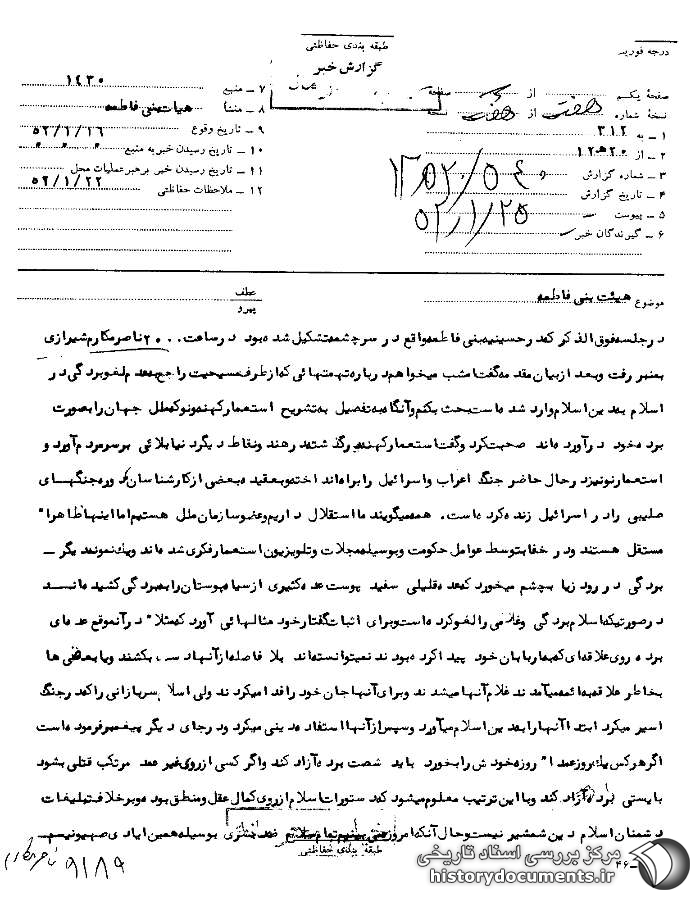 طبقه بندی حفاظتی
درجه فوریت
گزارش خبر
صفحه یکم از صفحه
نسخه شماره هفت از هفت نسخه
۱ ـ به ۳۱۲
۲ ـ از ۲۰ ه‍ ۱۲
۳ ـ شماره گزارش
۴ ـ تاریخ گزارش ۵۲/۱/۲۵
۵ ـ پیوست
۶ ـ گیرندگان خبر
۷ ـ منبع ۱۴۳۰
۸ ـ منشأ هیات بنی فاطمه
۹ ـ تاریخ وقوع ۵۲/۱/۱۶
۱۰ ـ تاریخ رسیدن خبر به منبع
۱۱ ـ تاریخ رسیدن خبر به رهبر عملیات محل ۵۲/۱/۲۲
۱۲ ـ ملاحظات حفاظتی
موضوع هیئت بنی فاطمه
عطف
پیرو
در جلسه فوق الذکر که در حسینیه بنی فاطمه واقع در سرچشمه تشکیل شده بود در ساعت ۲۰۰۰ ناصر مکارم شیرازی
بمنبر رفت و بعد از بیان مقدمه گفت امشب میخواهم درباره تهمتهائی که از طرف مسیحیت راجع بعدم لغو بردگی در
اسلام بدین اسلام وارد شده است بحث بکنم و آنگاه به تفصیل به تشریح استعمار کهنه و نو که ملل جهان را بصورت
برده خود درآورده اند صحبت کرد و گفت استعمار کهنه در گذشته در هند و نقاط دیگر دنیا بلائی بر سر مردم آورد و
استعمار نو نیز در حال حاضر جنگ اعراب و اسرائیل را براه انداخته و بعقیده بعضی از کارشناسان دوره جنگهای
صلیبی را در اسرائیل زنده کرده است. همه میگویند ما استقلال داریم و عضو سازمان ملل هستیم اما اینها ظاهرا"
مستقل هستند و در خفا بتوسط عوامل حکومت و بوسیله مجلات و تلویزیون استعمار فکری شده اند و یک نمونه دیگر ـ
بردگی در رودزیا بچشم میخورد که عده قلیلی سفید پوست عده کثیری از سیاه پوستان را ببردگی کشیده اند
در صورتیکه اسلام بردگی و غلامی را لغو کرده است و برای اثبات گفتار خود مثالهائی آورد که مثلا" در آنموقع عده ای
برده روی علاقه ای که به اربابان خود پیدا کرده بودند نمیتوانسته اند بلافاصله از آنها دست بکشند و یا بعضی ها
بخاطر علاقه به ائمه میآمدند غلام آنها میشدند و برای آنها جان خود را فدا میکردند ولی اسلام سربازانی را که در جنگ
اسیر میکرد ابتدا آنها را بدین اسلام میآورد و سپس از آنها استفاده دینی میکرد و در جای دیگر پیغمبر فرموده است
اگر هرکس یکروز عمدا" روزه خودش را بخورد باید شصت برده آزاد کند و اگر کسی از روی غیر عمد مرتکب قتلی بشود
بایستی برده آزاد کند و با این ترتیب معلوم میشود که دستورات اسلام از روی کمال عقل و منطق بوده و برخلاف تبلیغات
دشمنان اسلام دین شمشیر نیست و حال آنکه امروز بوسیله همین ایادی صهیونیسم
طبقه بندی حفاظتی
۹۱۸۹
مرکز بررسی اسناد تاریخی
historydocuments.ir